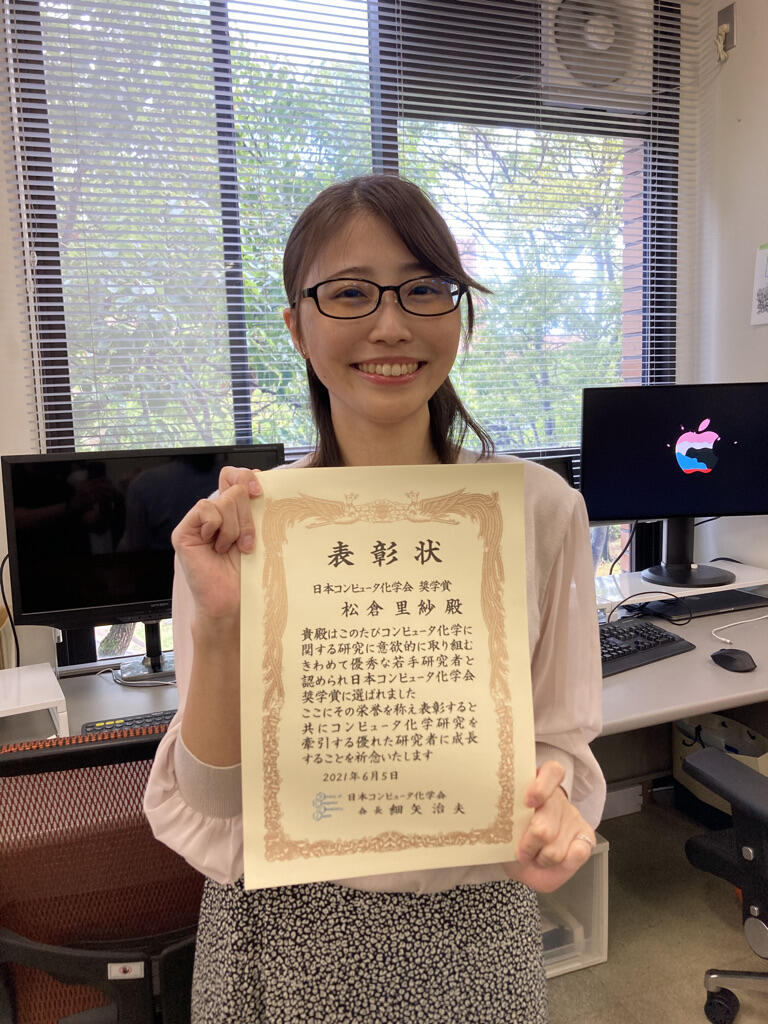 表彰状
日本コンピュータ化学会 奨学賞
松倉里紗殿
貴殿はこのたびコンピュータ化学に
関する研究に意欲的に取り組む
きわめて優秀な若手研究者と
認められ日本コンピュータ化学会
奨学賞に選ばれました
ここにその栄誉を称え表彰すると
共にコンピュータ化学研究を
牽引する優れた研究者に成長
することを祈念いたします
2021年6月5日
日本コンピュータ化学会
会長 細矢治夫